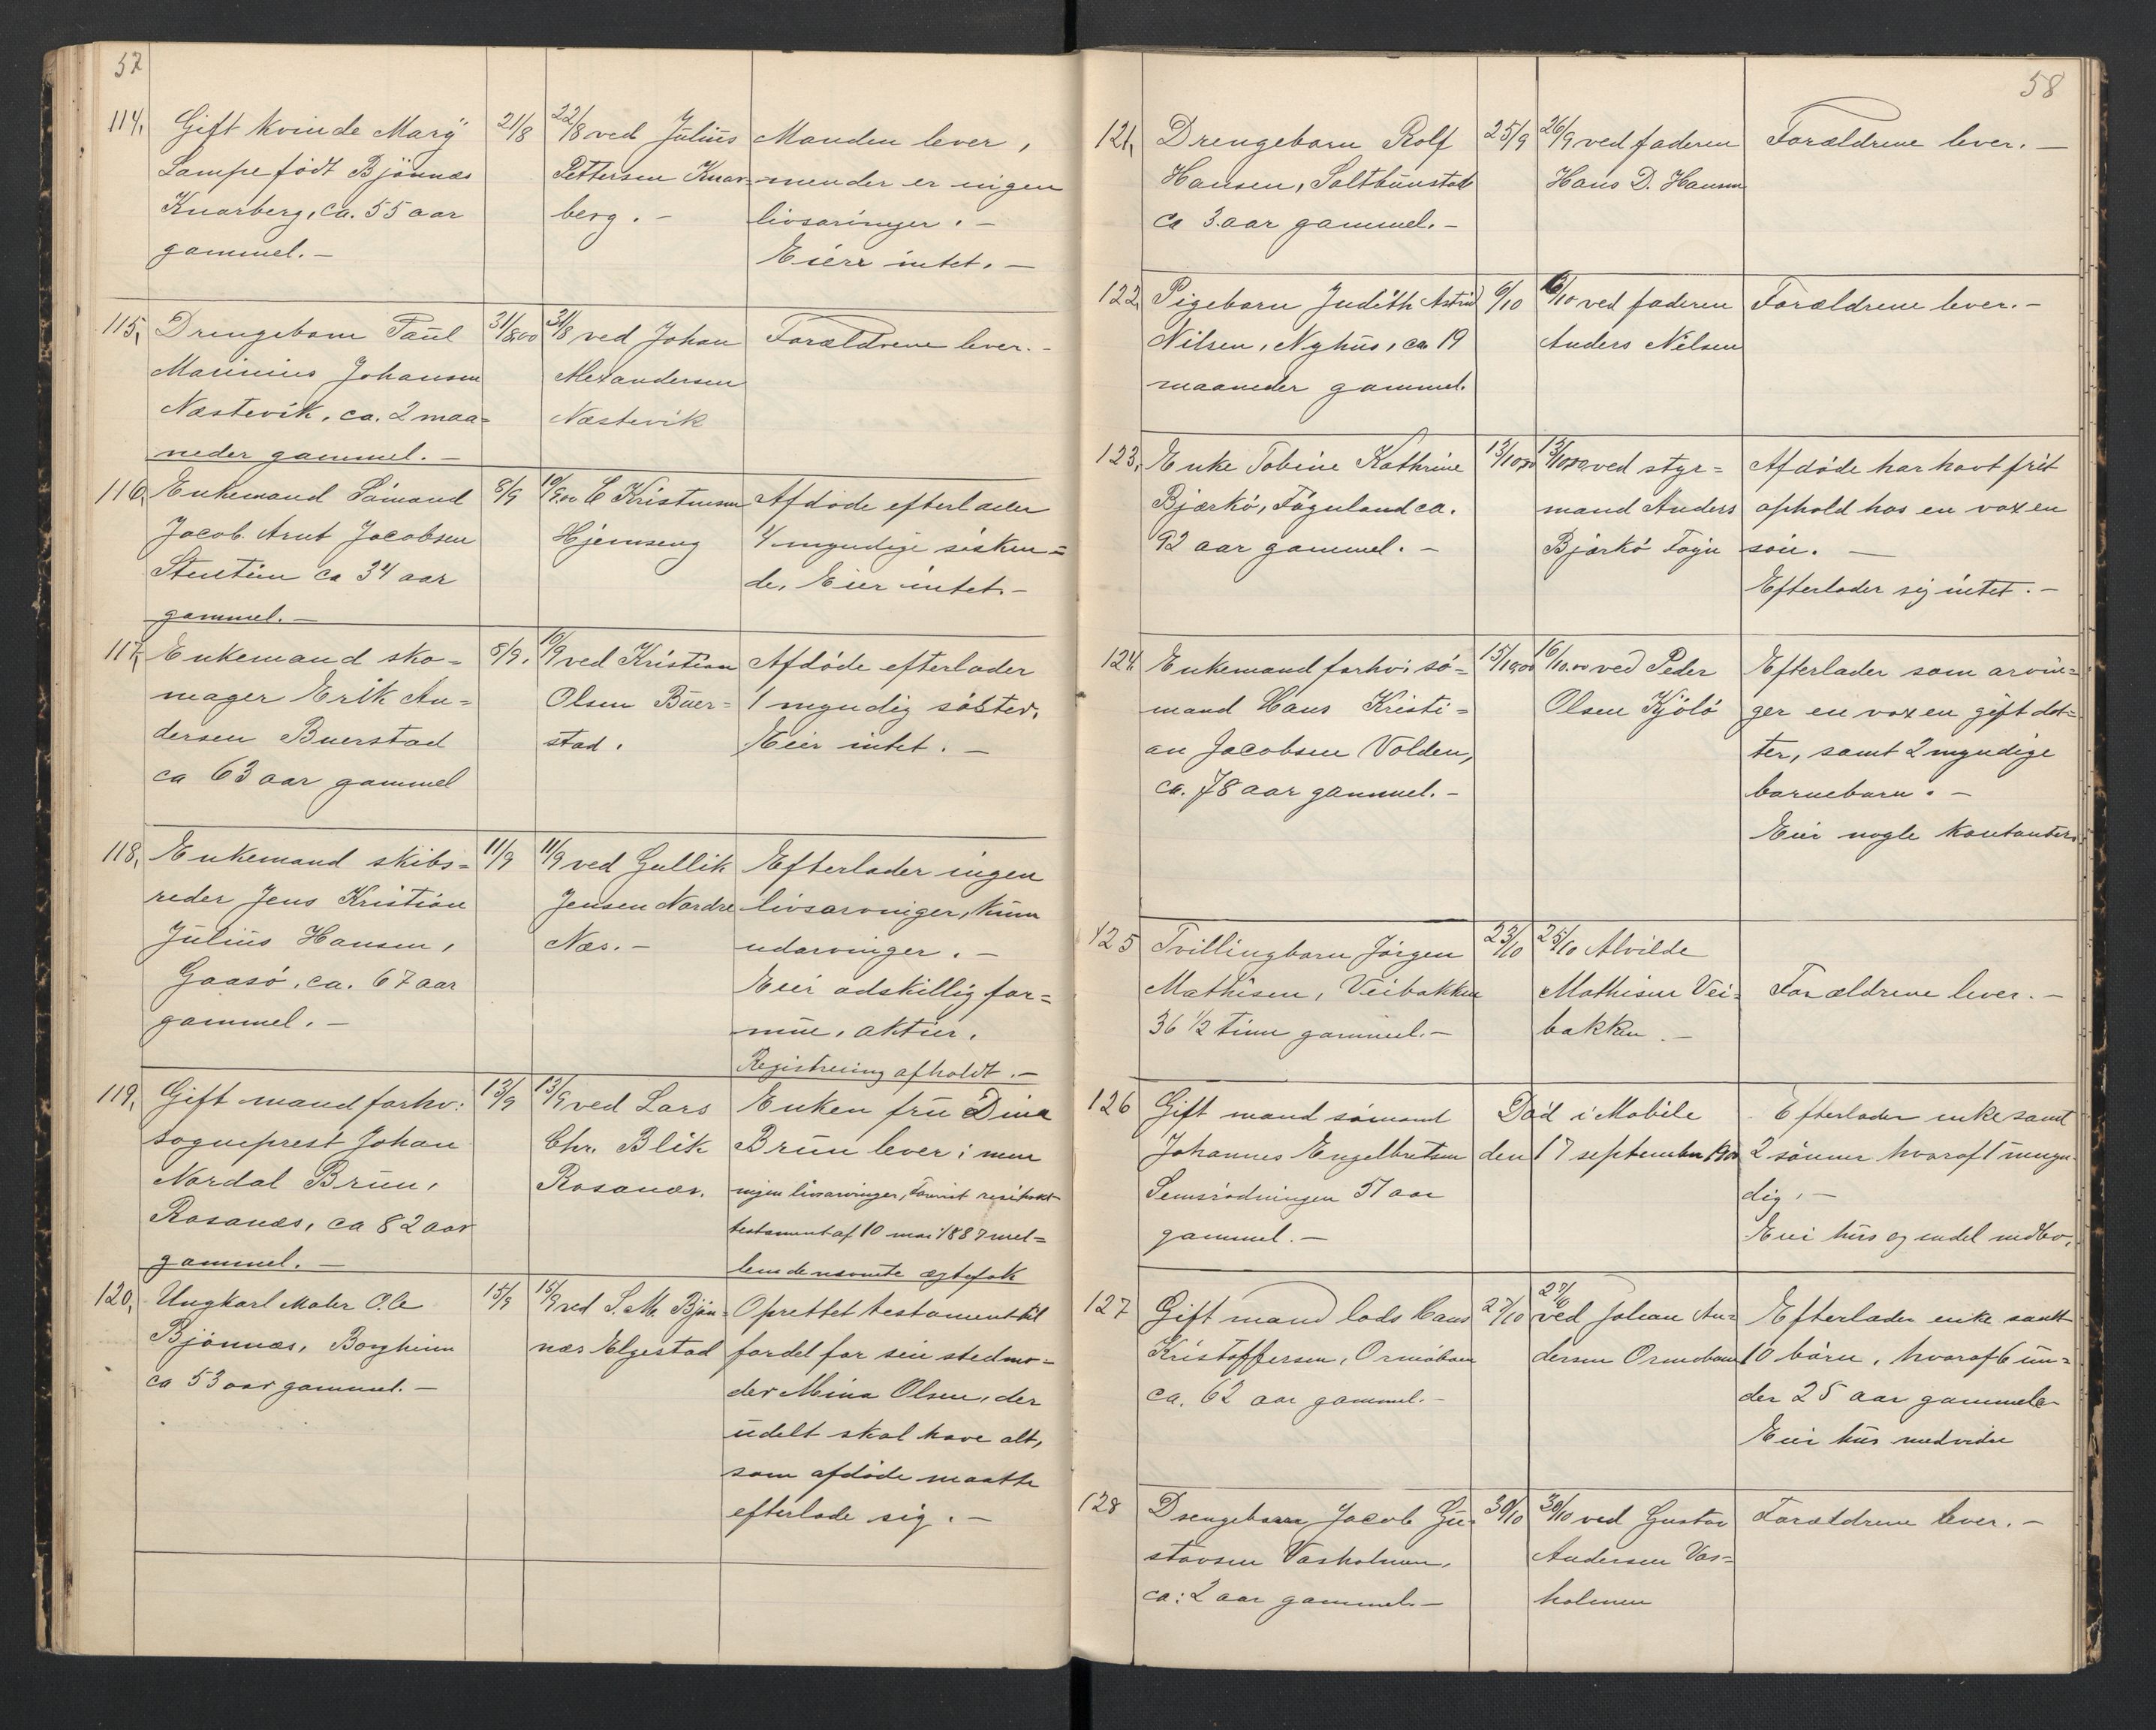 57
114, Gift kvinde Mary
Lampe födt Bjönnes
Knarberg, ca. 55 aar
gammel. –
21/8
22/8 ved Julius
Pettersen Knar=
berg. –
Manden lever,
men der er ingen
livsarvinger. –
Eier intet. –
115, Drengebarn Paul
Marinius Johansen
Næstevik, ca. 2 maa=
neder gammel. –
31/8 00
31/8 ved Johan
Alexandersen
Næstevik
Forældrene lever. –
116, Enkemand Sömand
Jacob Arnt Jacobsen
ca 34 aar
gammel. –
8/9
10/9.00 C Kristensen
Hjemseng
Afdöde efterlader
4 myndige sösken=
de, Eier intet. –
117, Enkemand sko=
mager Erik An=
dersen Buerstad
ca 63 aar gammel
8/9.
10/9 ved Kristian
Olsen Buer=
stad.
Afdöde efterlader
1 myndig söster.
Eier intet. –
118, Enkemand skibs=
reder Jens Kristian
Julius Hansen,
Gaasö, ca. 67 aar
gammel. –
11/9
11/9 ved Gullik
Jensen Nordre
Næs. –
Efterlader ingen
livsarvinger, kun
udarvinger. –
Eier adskillig for=
mue, aktier.
Registrering afholdt. –
119, Gift mand forhv:
sogneprest Johan
Nordal Brun,
Rosanes, ca 82 aar
gammel. –
13/9
13/9 ved Lars
Chr. Blik
Rosanes.
Enken fru Dina
Brun lever; men
ingen livsarvinger,
testament af 10 mai 1887 mel=
lem de nævnte ægtefolk
120, Ungkarl Maler Ole
Bjönnes, Borgheim
ca 53 aar gammel. –
15/9
15/9 ved S. M. Bjön=
nes Elgestad
Oprettet testament til
fordel for sin stedmo=
der Mina Olsen, der
udelt skal have alt,
som afdöde maatte
efterlade sig. –
58
121, Drengebarn Rolf
Hansen, Saltbunstad
ca 3 aar gammel. –
25/9
26/9 ved faderen
Hans D. Hansen
Forældrene lever. –
122, Pigebarn Judith Astrid
Nilsen, Nyhus, ca 19
maaneder gammel.
6/10
6/10 ved faderen
Anders Nilsen
Forældrene lever. –
123, Enke Tobine Kathrine
Bjærkö, Föynland ca.
92 aar gammel. –
13/10 00
15/10 00 ved styr=
mand Anders
Bjærkö Föyn
Afdöde har havt frit
ophold hos en voxen
sön. –
Efterlader sig intet. –
124, Enkemand forhv: sö=
mand Hans Kristi=
an Jacobsen Volden,
ca. 78 aar gammel. –
15/10.00
16/10.00 ved Peder
Olsen Kjölö
Efterlader som arvin=
ger en voxen gift dat=
ter, samt 2 myndige
barnebarn. –
Eier nogle kontanter.
125 Tvillingbarn Jörgen
Mathisen, Veibakken
36 1/2 time gammel. –
23/10
25/10 Alvilde
Mathisen Vei=
bakken. –
Forældrene lever. –
126 Gift mand sömand
Johannes Engelbretsen
Semsrödningen 51 aar
gammel. –
Död i Mobile
den 17 september 1900
Efterlader enke samt
2 sönner hvoraf 1 umyn=
dig. –
Eier hus og endel indbo.
127 Gift mand lods Hans
Kristoffersen, Ormöban
ca. 62 aar gammel. –
27/10
27/10
ved Johan An=
dersen Ormöban
Efterlader enke samt
10 börn, hvoraf 6 un=
der 25 aar gammele
Eier hus medvidre
128 Drengebarn Jacob Gu=
stavsen Vasholmen,
ca: 2 aar gammel. –
30/10
30/10 ved Gustav
Andersen Vas=
holmen
Forældrene lever. –